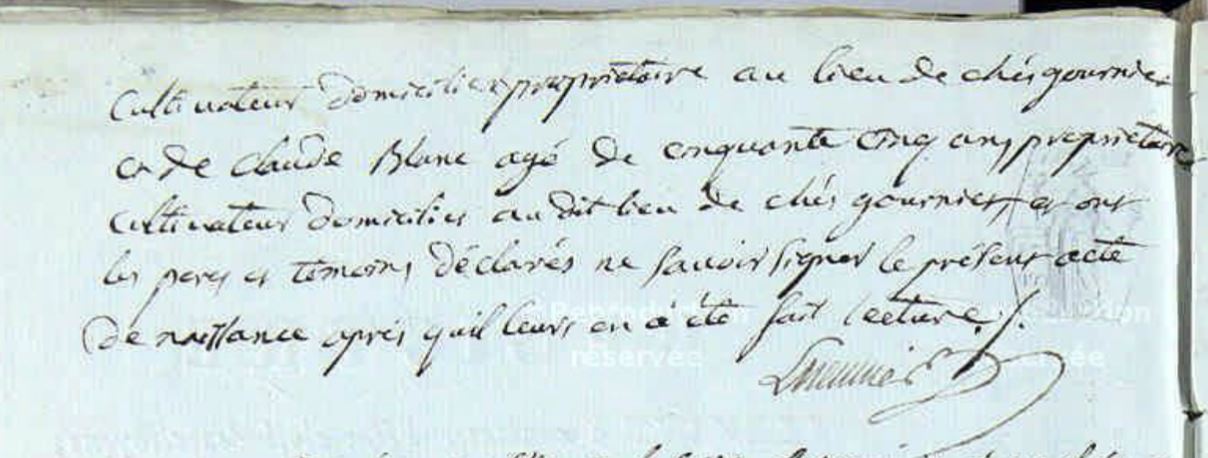 Cultivateur domicilié propriétaire au lieu de chés gournier
et de claude Blanc agé de cinquante cinq ans propriétaire
cultivateur domicilies au dit lieu de chés gournier, et ont
les peres et témoins déclarés ne savoir signer le présent acte
de naissance aprés quil leurs en à été fait lecture ./.
Reproduction
réservée